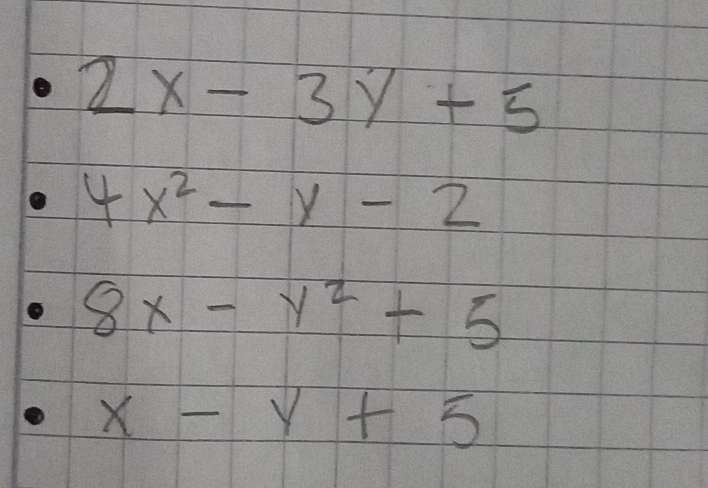 • 2x - 3y + 5
• 4x² - y - 2
• 8x - y² + 5
• x - y + 5